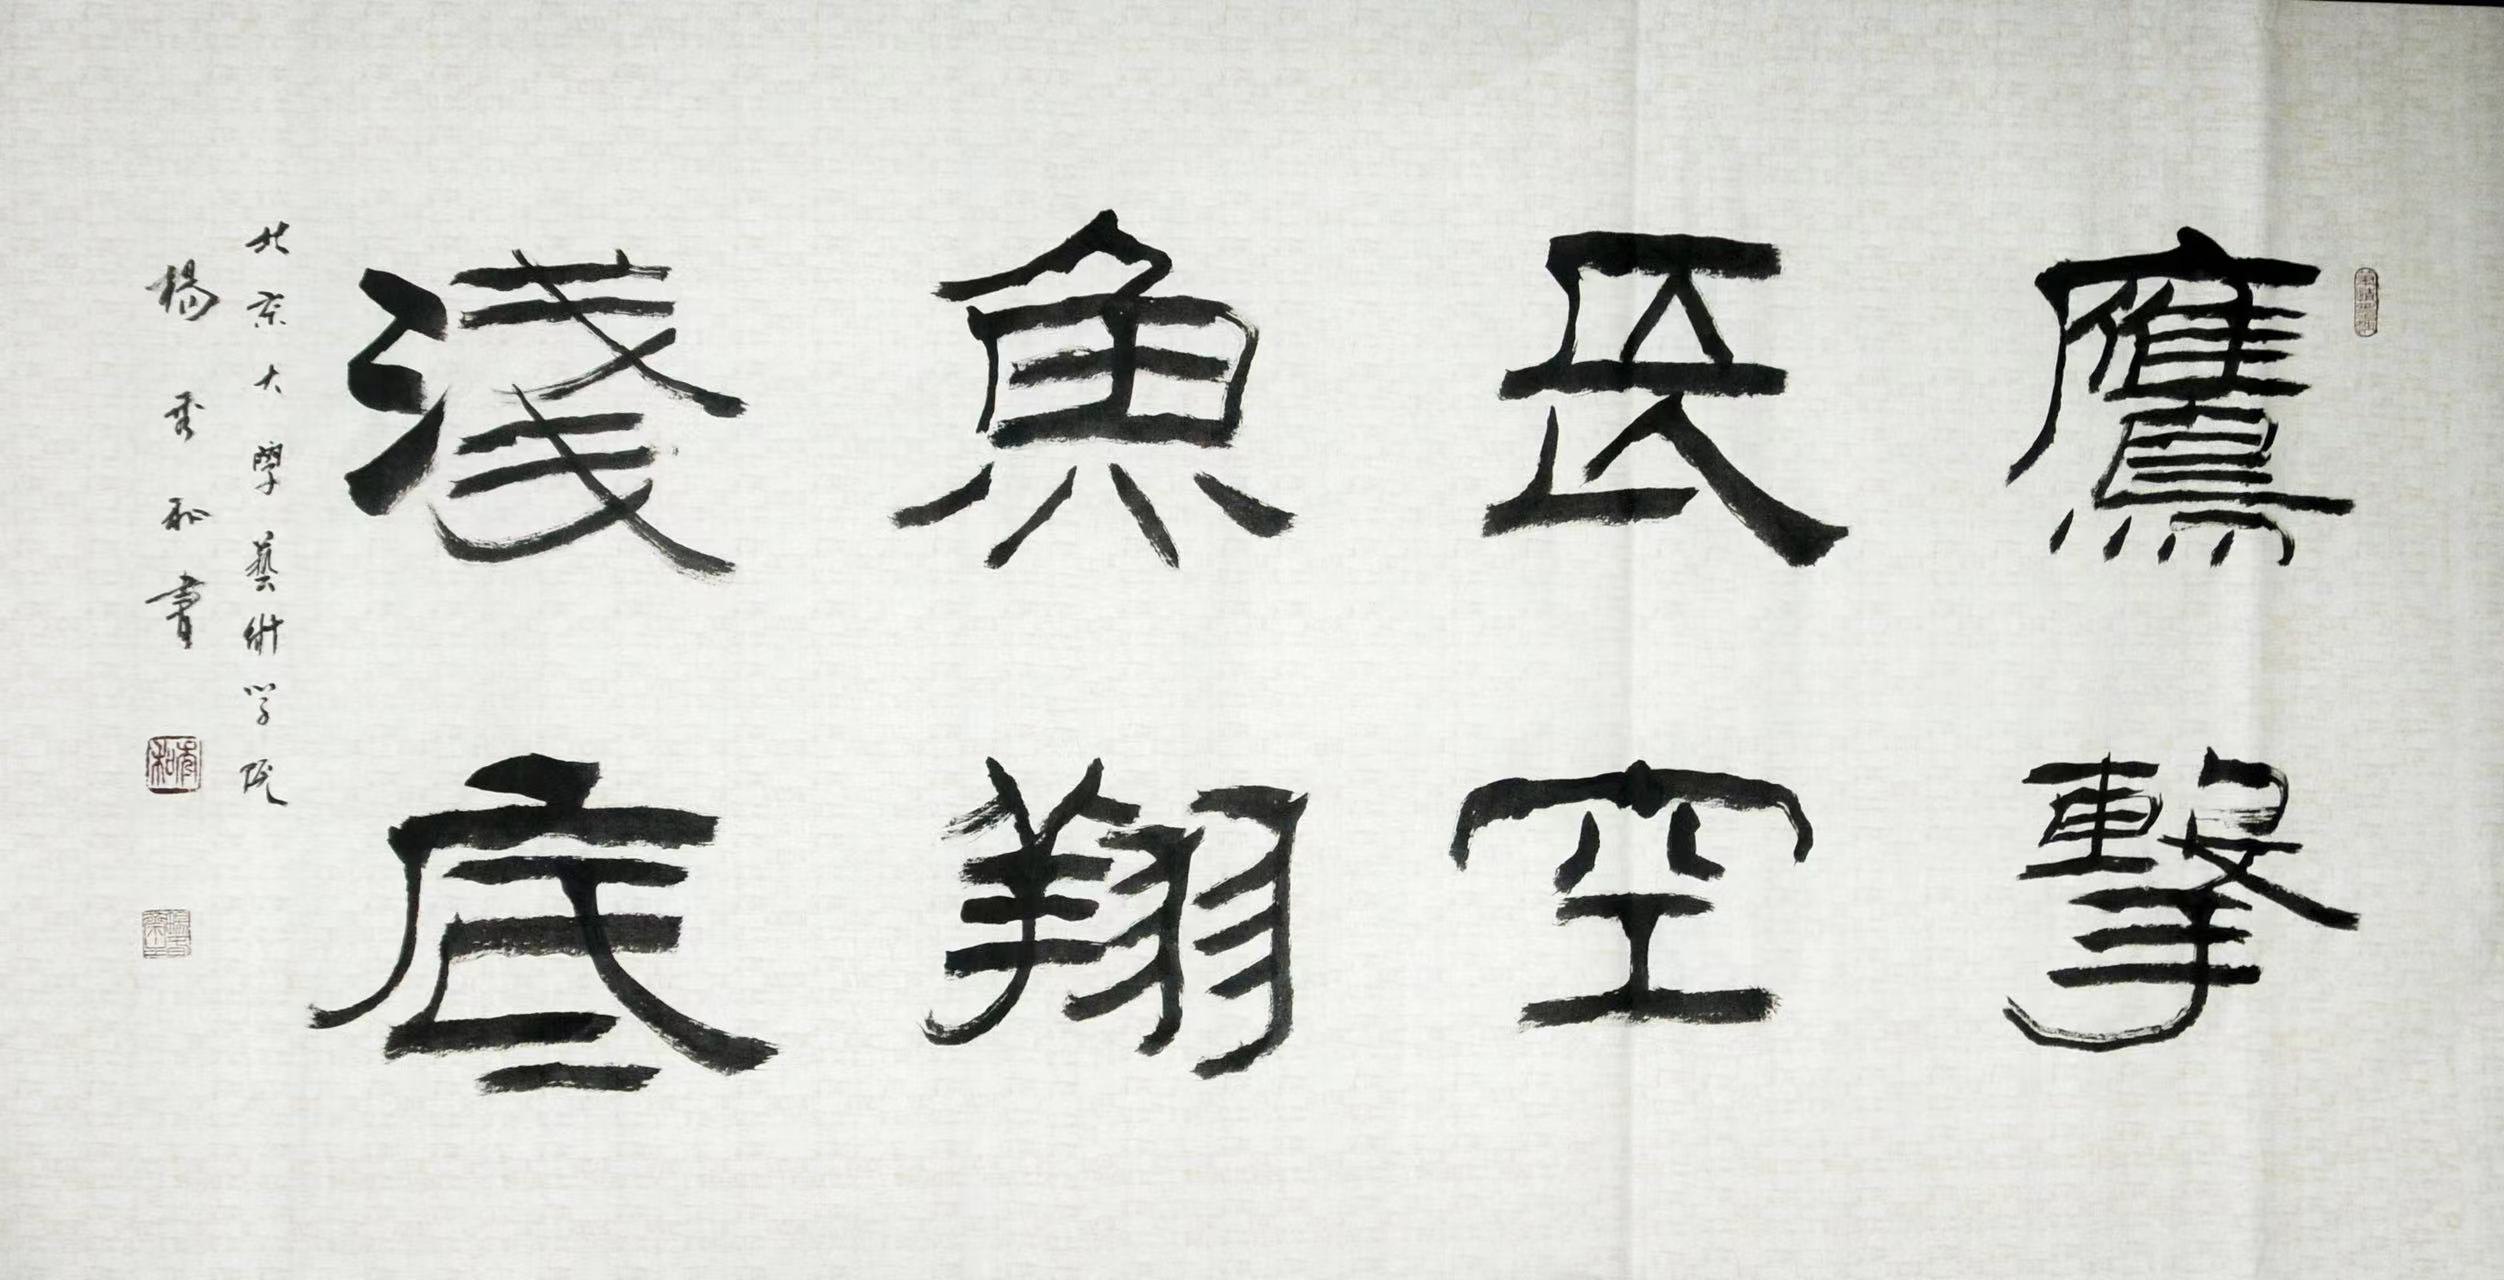 鷹擊
長空
魚翔
淺底
北京大學藝術学院
楊秀和書